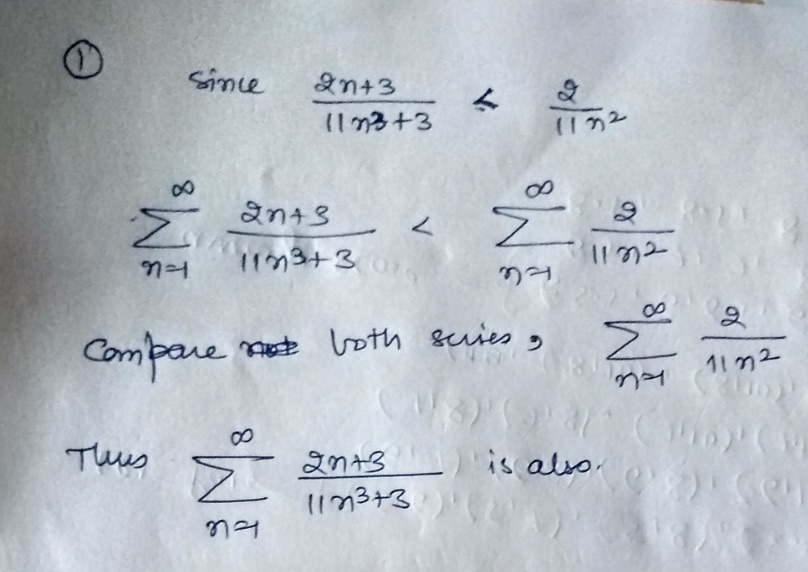 ①
Since \frac{2n+3}{11n^3+3} < \frac{2}{11n^2}
\sum_{n=1}^{\infty} \frac{2n+3}{11n^3+3} < \sum_{n=1}^{\infty} \frac{2}{11n^2}
Compare both series, \sum_{n=1}^{\infty} \frac{2}{11n^2}
Thus \sum_{n=1}^{\infty} \frac{2n+3}{11n^3+3} is also.